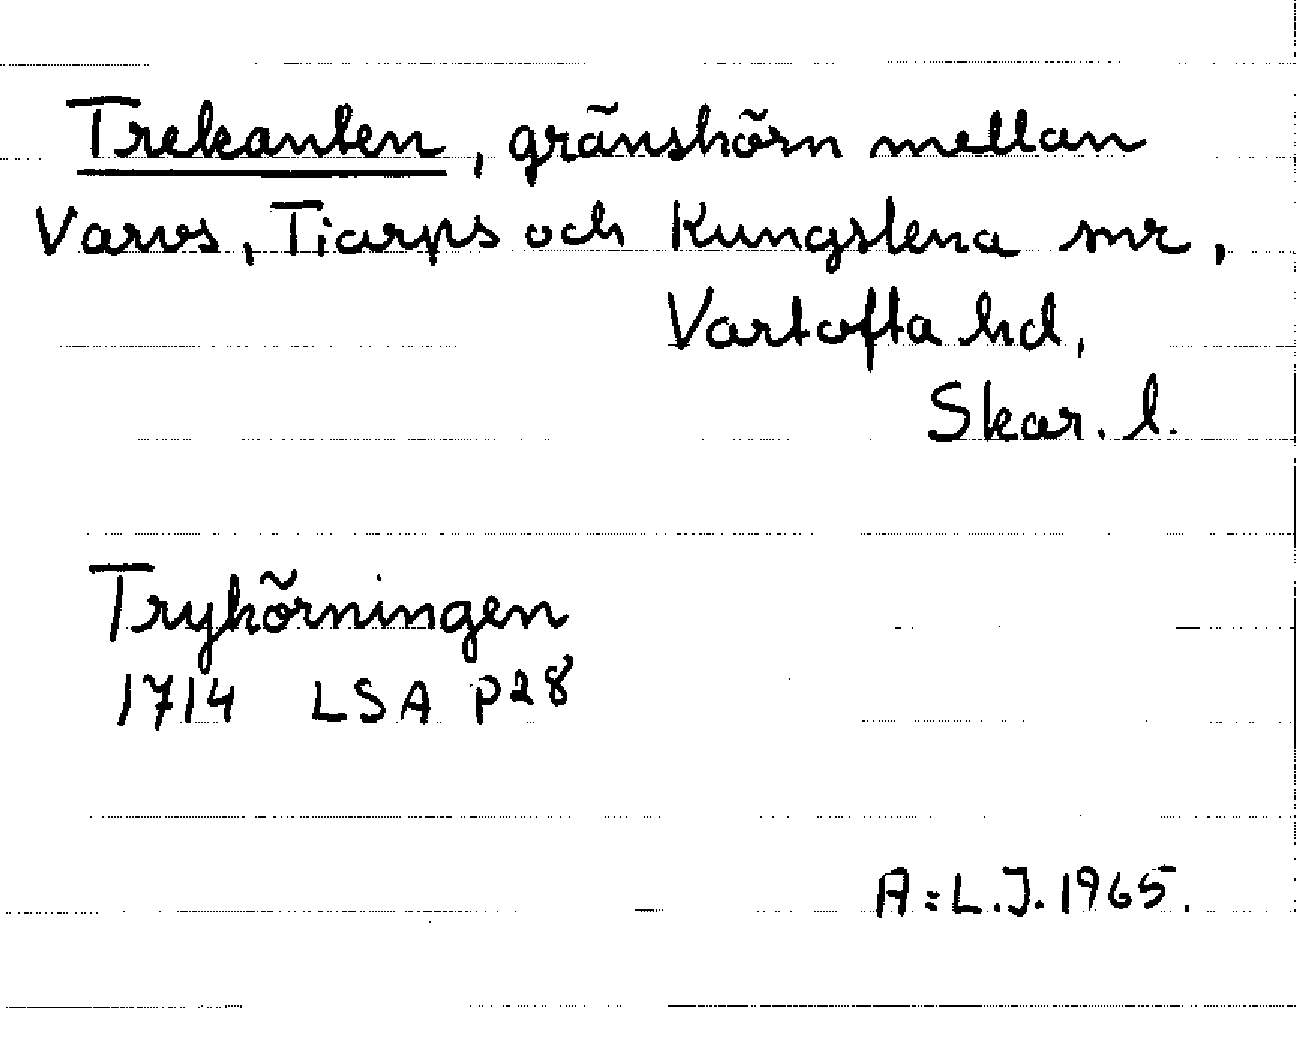 Trekanten, gränshörn mellan
Varvs, Tiarps och Kungslena snr,
Vartofta hd,
Skar. l.
Tryhörningen
1714 LSA P28
A:L.J. 1965.